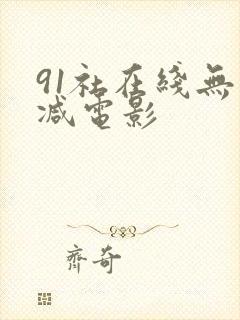 91社在綫無
减電影
齊奇